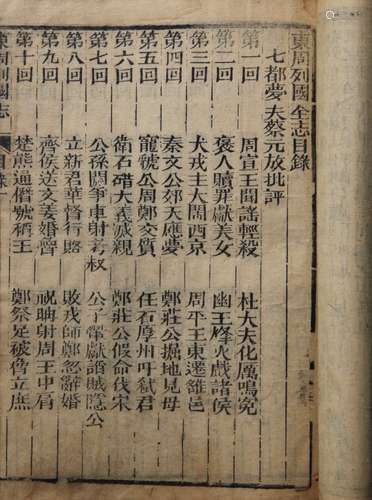 東周列國全志目錄
七都夢夫蔡元放批評
第一回 周宣王聞謠輕殺 杜大夫化厲鳴冤
第二回 褒人贖罪獻美女 幽王烽火戲諸侯
第三回 犬戎主大鬧西京 周平王東遷雒邑
第四回 秦文公郊天應夢 鄭莊公掘地見母
第五回 寵虢公周鄭交質 鄭莊公假命伐宋
第六回 衛石碏大義滅親 鄭莊公假命伐宋
第七回 公孫閼爭車射考叔 公子翬獻諂賊隱公
第八回 立新君華督行賂 敗戎師鄭忽辭婚
第九回 齊侯送文姜婚魯 祝聃射周王中肩
第十回 楚熊通僭號稱王 鄭祭足被脅立庶
東周列國志 目錄